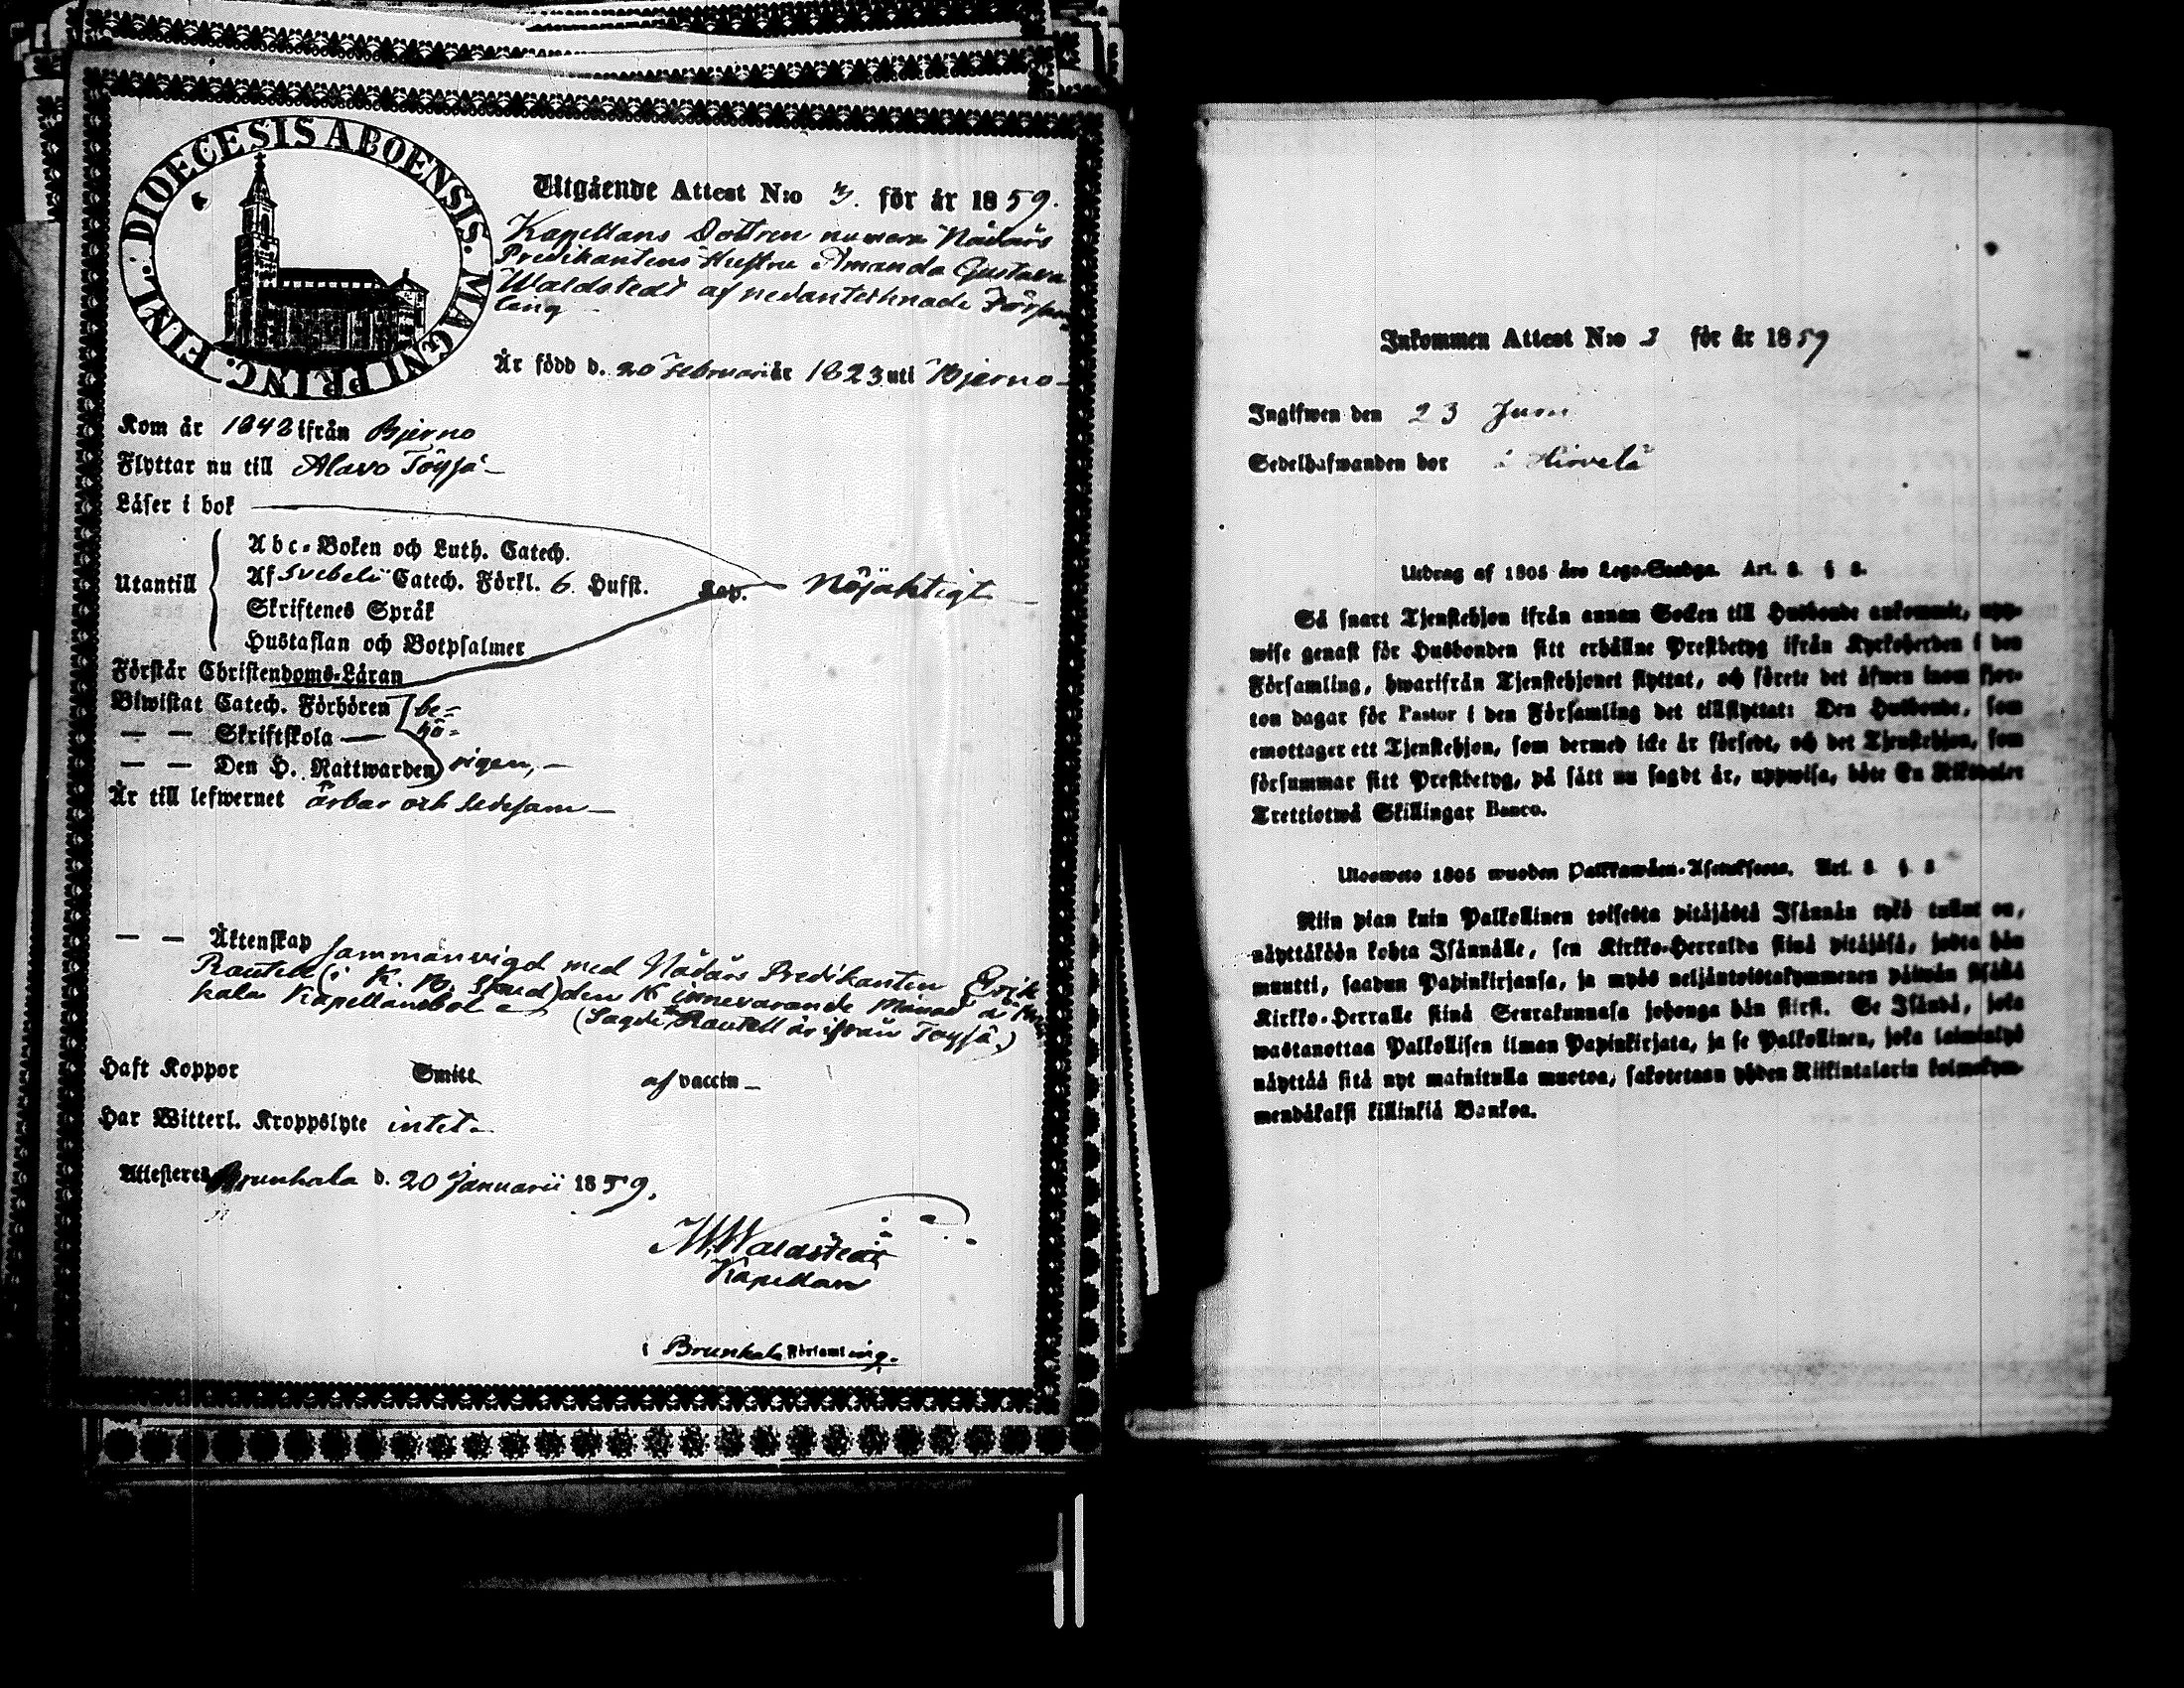 DIOECESIS ABOENSIS. MAGNI PRINC. FINL.
Utgående Attest N:o 3. för år 1859.
Kapellans Dottren numera Nådårs
Predikantens Hustru Amanda Gustava
Waldstedt af nedantecknade Försam
ling
Är född d. 20 Februari år 1823 uti Bjerno
Kom år 1842 ifrån Bjerno
Flyttar nu till Alavo Töysä
Läser i bok
Utantill
Abc-Boken och Luth. Catech.
Af Svebelii Catech. Förkl. 6 Hufst. Kap. Nöjaktigt
Skriftenes Språk
Hustaflan och Botpsalmer
Förstår Christendoms-Läran
Biwistat Catech. Förhören be-
— — Skriftskola — hö-
— — Den H. Nattwarden rigen,
Är till lefwernet ärbar och sedesam
— — Äktenskap sammanvigd med Nådårs Predikanten Erik
Rautell (i K. B. Staud) den 16 innevarande Månad å Brun
kala Kapellansbol
(Sagde Rautell är ifrån Töysä.)
Haft Koppor Smitt af vaccin
Har Witterl. Kroppslyte intet
Attesteres Brunkala d. 20 Januarii 1859.
Waldstedt
Kapellan
i Brunkala Församling.
Inkommen Attest N:o 3 för år 1859
Ingifwen den 23 Juni
Sedelhafwanden bor å Hirvelä
Utdrag af 1805 års Lego-Stadga. Art. 8. § 8.
Så snart Tjenstehjon ifrån annan Socken till Husbonde ankommit, upp-
wise genast för Husbonden sitt erhållne Prestbetyg ifrån Kyrkoherden i den
Församling, hwarifrån Tjenstehjonet flyttat, och förete det äfwen inom fjor-
ton dagar för Pastor i den Församling det tillflyttat: Den Husbonde, som
emottager ett Tjenstehjon, som dermed icke är försedt, och det Tjenstehjon, som
försummar sitt Prestbetyg, på sätt nu sagdt är, uppwisa, böte En Riksdaler
Trettiotwå Skillingar Banco.
Ulosweto 1805 wuoden Palkkawäen-Asetuksesta. Art. 8 § 8
Niin pian kuin Palkollinen toisesta pitäjästä Isännän tykö tullut on,
näyttäköön kohta Isännälle, sen Kirkko-Herralda siinä pitäjäsä, josta hän
muutti, saadun Papinkirjansa, ja myös neljäntoistakymmenen päiwän sisällä
Kirkko-Herralle siinä Seurakunnasa johonga hän siirsi. Se Isändä, joka
wastanottaa Palkollisen ilman Papinkirjata, ja se Palkollinen, joka laiminlyö
näyttää sitä nyt mainitulla muotoa, sakotetaan yhden Riikintalarin kolmekym-
mendäkaksi killinkiä Bankoa.